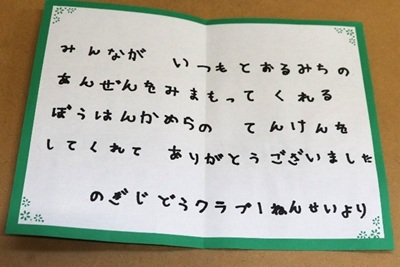 みんなが いつもとおるみちの
あんぜんをみまもって くれる
ぼうはんかめらの てんけんを
してくれて ありがとうございました
のぎじどうクラブ1ねんせいより